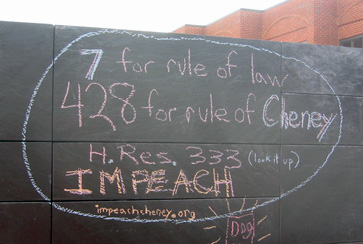 7 for rule of law
428 for rule of Cheney
H. Res. 333 (look it up)
IMPEACH
impeachcheney.org
DDG